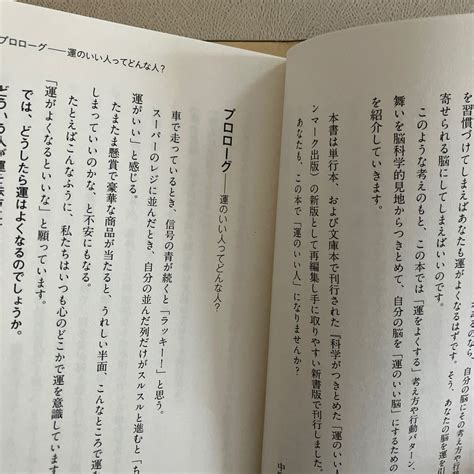 を習慣づけしてしまえばあなたも運がよくなるはずです。そう、あなたの脳を運を引
寄せられる脳にしてしまえばいいのです。
このような考えのもと、この本では「運をよくする」考え方や行動パターン、
舞いを脳科学的見地からつきとめて、自分の脳を「運のいい脳」にするための
を紹介していきます。
本書は単行本、および文庫本で刊行された『科学がつきとめた「運のいい
ンマーク出版）の新版として再編集し手に取りやすい新書版で刊行しました。
あなたも、この本で「運のいい人」になりませんか？
中
プロローグ――運のいい人ってどんな人？
プロローグ――運のいい人ってどんな人？
車で走っているとき、信号の青が続くと「ラッキー！」と思う。
スーパーのレジに並んだとき、自分の並んだ列だけがスルスルと進むと「ち
運がいい」と感じる。
たまたま懸賞で豪華な商品が当たると、うれしい半面、こんなところで運
しまっていいのかな、と不安にもなる。
たとえばこんなふうに、私たちはいつも心のどこかで運を意識しています
「運がよくなるといいな」と願っています。
では、どうしたら運はよくなるのでしょうか。
どういう人が運